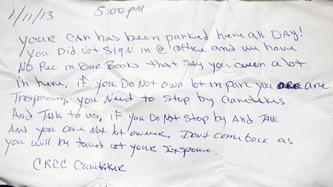 1/11/13 5:00pm
YOUR CAR has been parked here all DAY!
You Did Not Sign in @ office and we have
No Rec in Our Books that say you own a lot
In here, if you Do Not own lot in park you are
Trespassing, you Need to stop by Caretakers
And Talk to us, if you Do Not stop by And Talk
And you are Not lot owner, Dont come back as
you will be towed at your Expense.
CRCC Caretaker